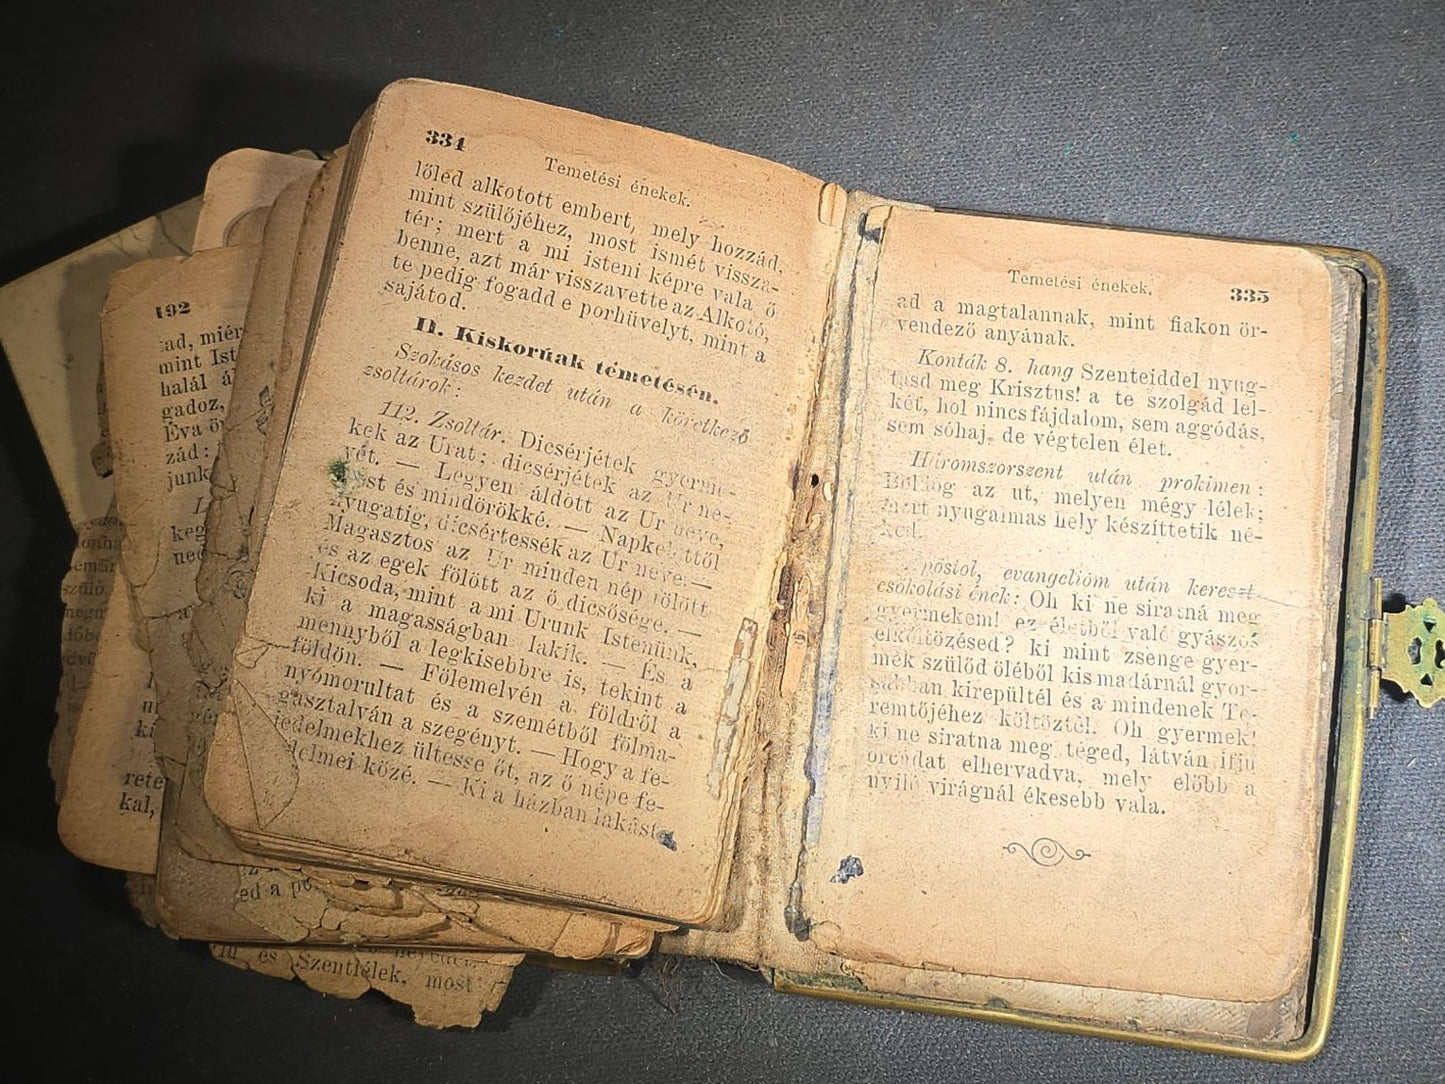 334
Temetési énekek.
lőled alkotott embert, mely hozzád,
mint szülőjéhez, most ismét vissza-
tér; mert a mi isteni képre vala ő
benne, azt már visszavette az Alkotó,
te pedig fogadd e porhüvelyt, mint a
sajátod.
II. Kiskorúak temetésén.
Szokásos kezdet után a következő
zsoltárok:
112. Zsoltár. Dicsérjétek gyerme-
kek az Urat; dicsérjétek az Ur ne-
vét. — Legyen áldott az Ur neve,
most és mindörökké. — Napkelettől
nyugatig, dicsértessék az Ur neve. —
Magasztos az Ur minden nép fölött
és az egek fölött az ő dicsősége. —
Kicsoda, mint a mi Urunk Istenünk,
ki a magasságban lakik. — És a
mennyből a legkisebbre is, tekint a
földön. — Fölemelvén a földről a
nyomorultat és a szemétből fölma-
gasztalván a szegényt. — Hogy a fe-
jedelmekhez ültesse őt, az ő népe fe-
delmei közé. — Ki a házban lakást
Temetési énekek.
335
ad a magtalannak, mint fiakon ör-
vendező anyának.
Konták 8. hang Szenteiddel nyug-
tasd meg Krisztus! a te szolgád lel-
két, hol nincs fájdalom, sem aggódás,
sem sóhaj, de végtelen élet.
Háromszorszent után prokimen:
Boldog az ut, melyen mégy lélek;
mert nyugalmas hely készíttetik né-
ked.
Apostol, evangeliom után kereszt-
csókolási ének: Oh ki ne siratná meg
gyermekem! ez életből való gyászos
elköltözésed? ki mint zsenge gyer-
mek szülőd öléből kis madárnál gyor-
sabban kirepültél és a mindenek Te-
remtőjéhez költöztél. Oh gyermek!
ki ne siratna meg téged, látván ifju
orcádat elhervadva, mely előbb a
nyiló virágnál ékesebb vala.
192
ad, miér
mint Ist
halál ál
gadoz,
Éva ör
zád:
junk
keg
rete
kal,
ed a po
és Szentlélek, most